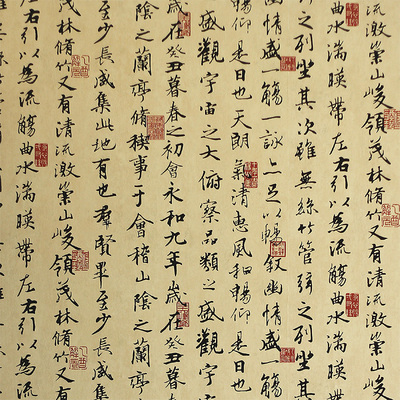 流激崇山峻領茂林脩竹又有清流激崇山峻
曲水湍暎帶左右引以為流觴曲水湍暎帶
之列坐其次雖無絲竹管弦之列坐其
幽情盛一觴一詠亦足以暢敘幽情盛一觴
暢仰是日也天朗氣清惠風和暢仰是日也
盛觀宇宙之大俯察品類之盛觀宇
歲在癸丑暮春之初會永和九年歲在癸丑暮
陰之蘭亭脩稧事于會稽山陰之蘭亭
至少長咸集此地有也羣賢畢至少長咸集
茂林脩竹又有清流激崇山峻領茂林脩竹又有
右引以為流觴曲水湍暎帶左右引以為流